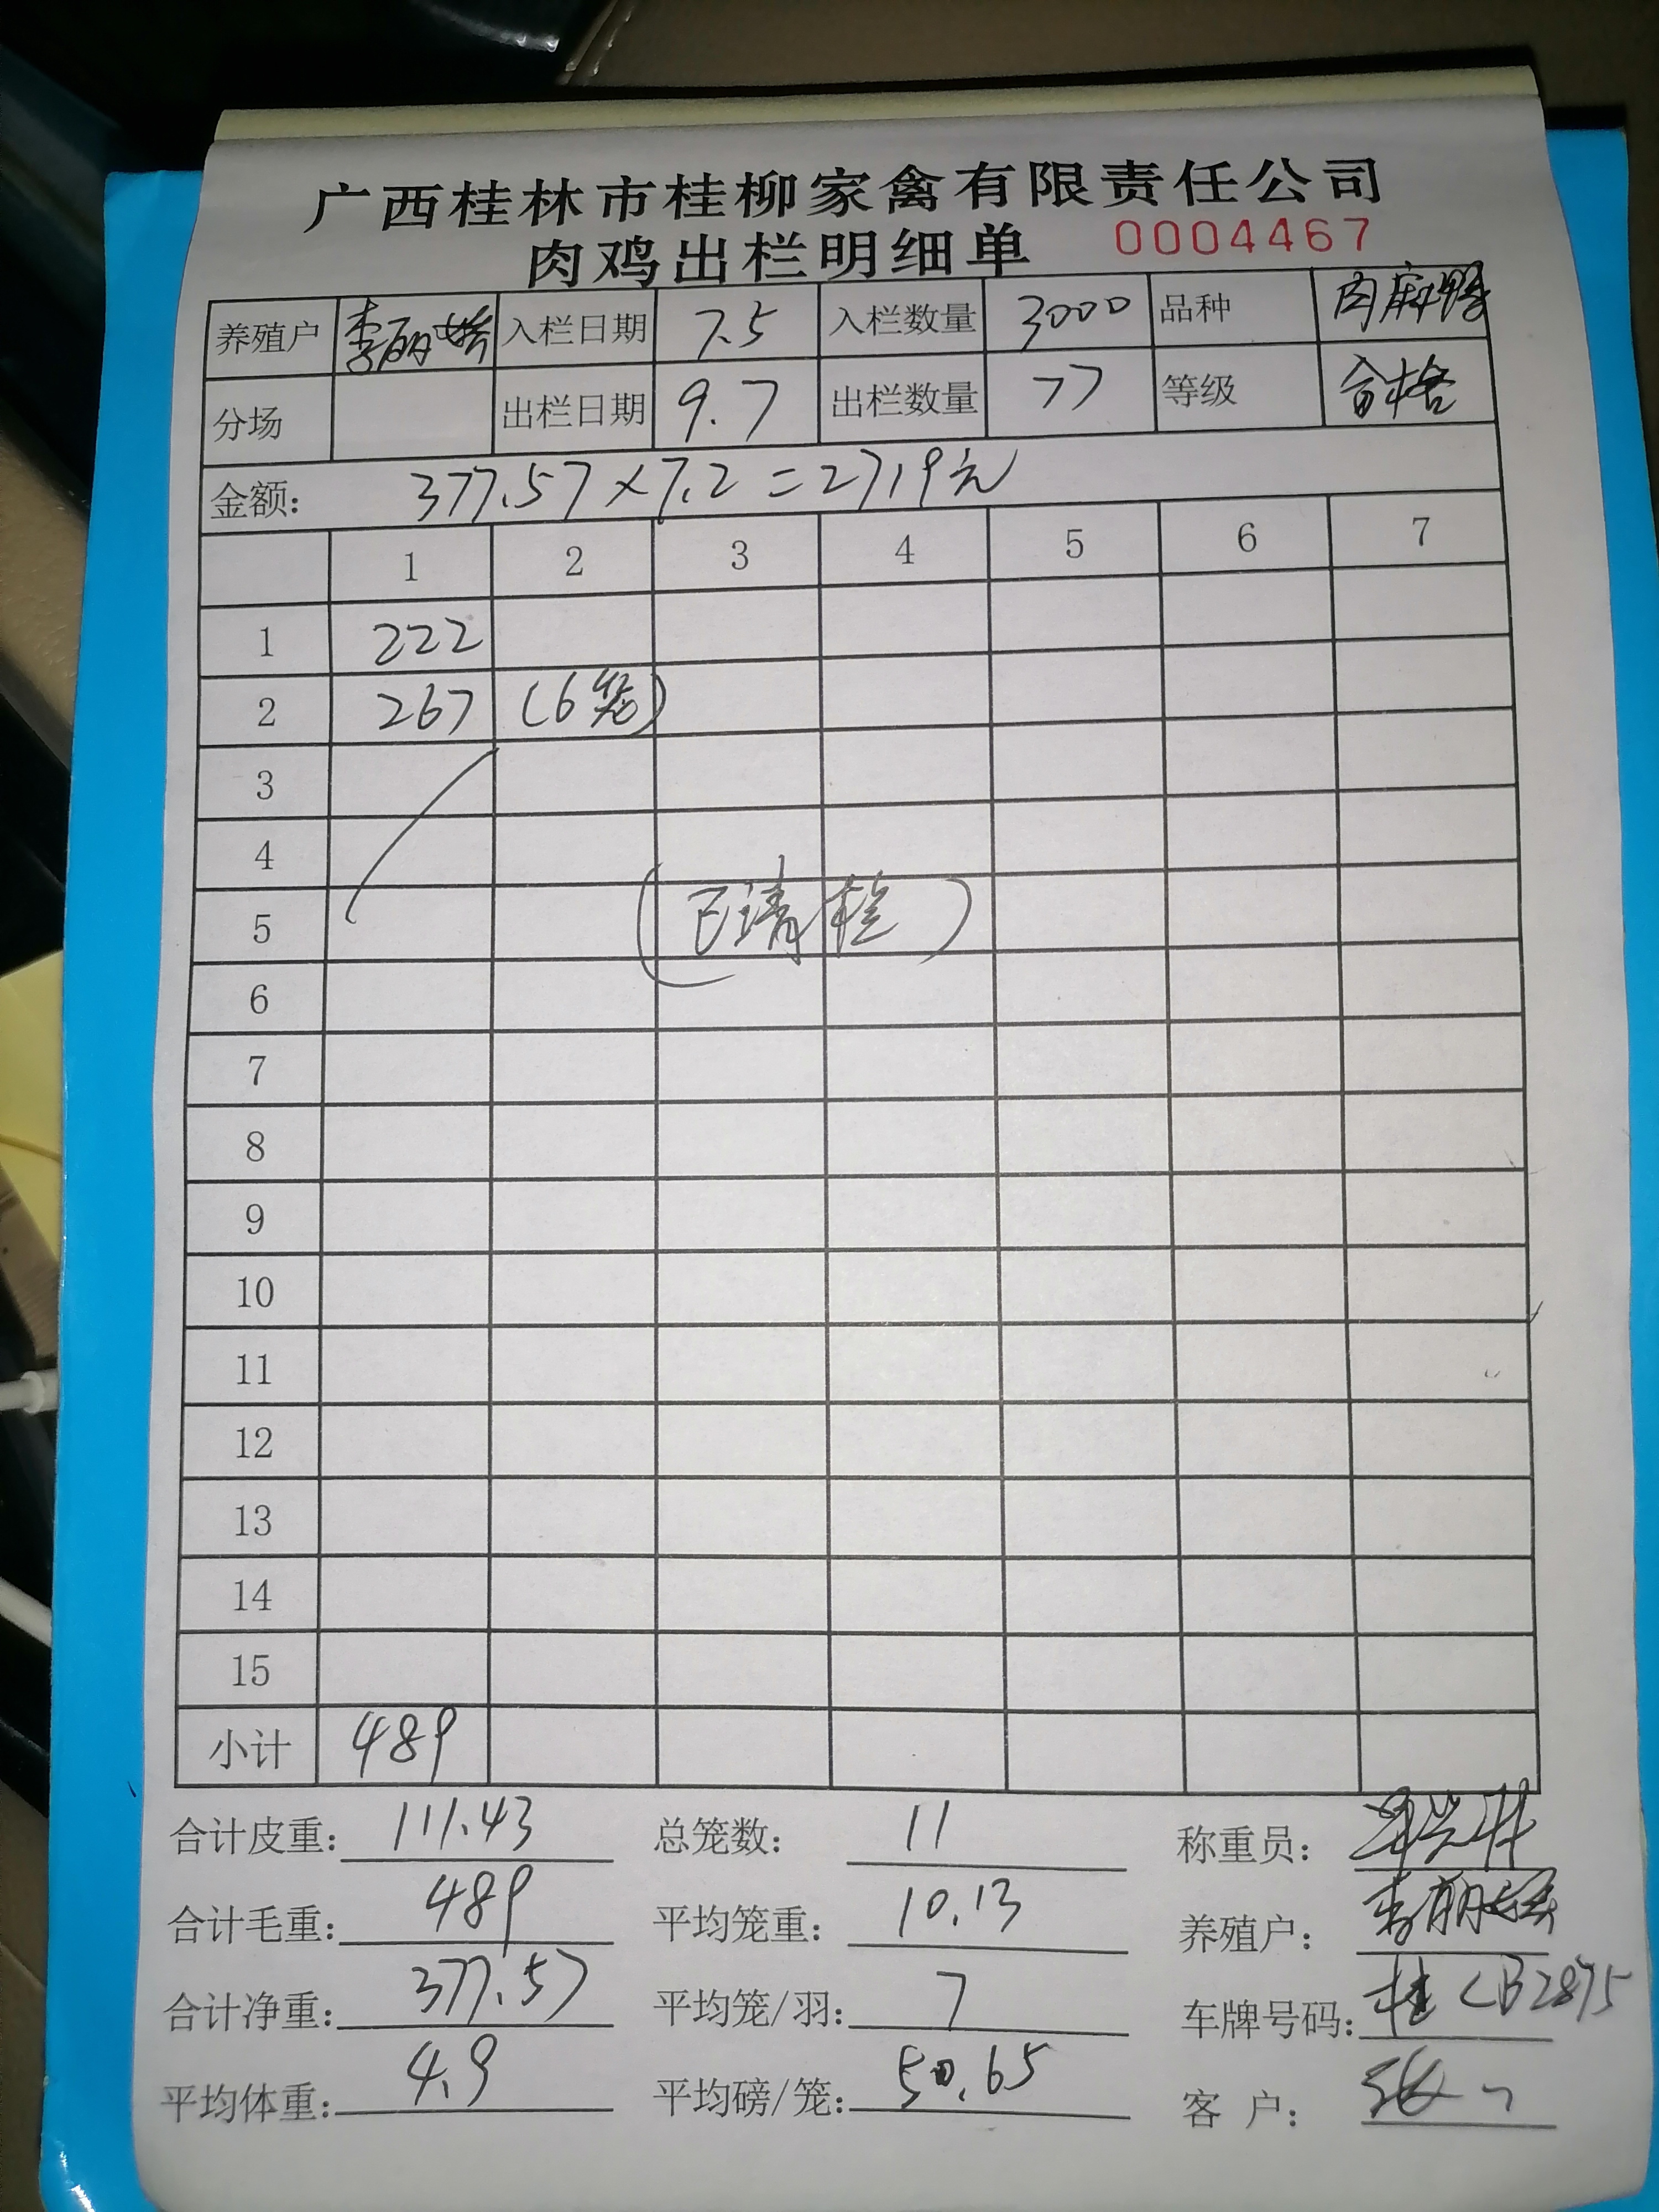 广西桂林市桂柳家禽有限责任公司
肉鸡出栏明细单 0004467
养殖户 李丽 入栏日期 7.5 入栏数量 3000 品种 肉麻鸭
分场 出栏日期 9.7 出栏数量 77 等级 合格
金额: 377.57×7.2=2719元
1 2 3 4 5 6 7
1 222
2 267 (6笼)
3
4
5 (已清栏)
6
7
8
9
10
11
12
13
14
15
小计 489
合计皮重: 111.43 总笼数: 11 称重员:
合计毛重: 489 平均笼重: 10.13 养殖户: 李丽
合计净重: 377.57 平均笼/羽: 7 车牌号码: 桂CB2875
平均体重: 4.9 平均磅/笼: 50.65 客户: 张